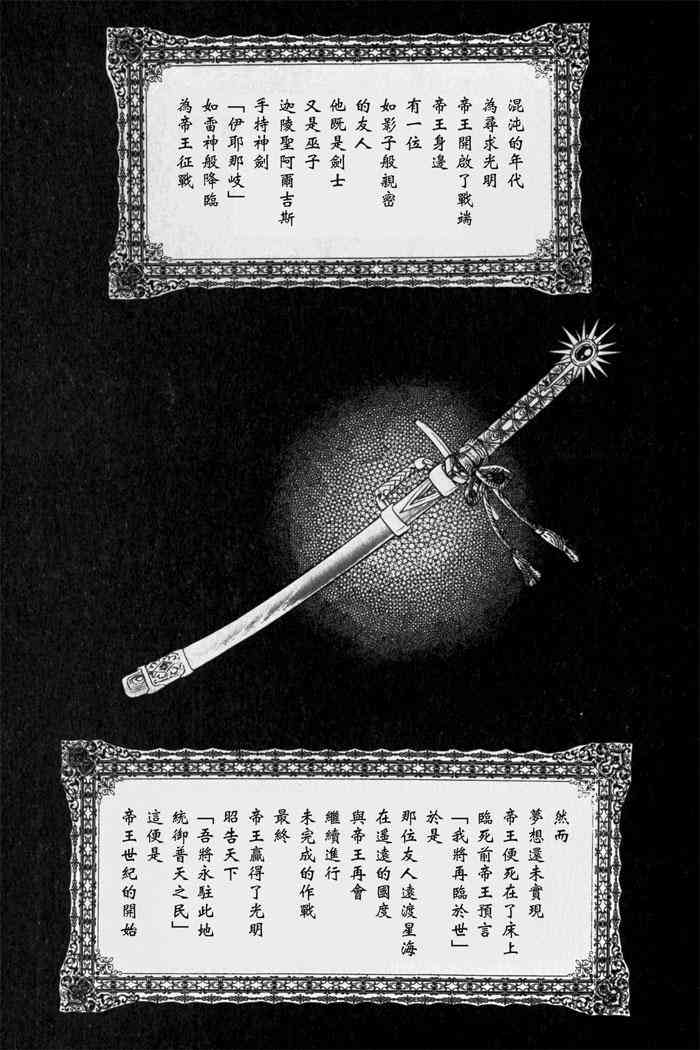 混沌的年代
為尋求光明
帝王開啟了戰端
帝王身邊
有一位
如影子般親密
的友人
他既是劍士
又是巫子
迦陵聖阿爾吉斯
手持神劍
「伊耶那岐」
如雷神般降臨
為帝王征戰
然而
夢想還未實現
帝王便死在了床上
臨死前帝王預言
「我將再臨於世」
於是
那位友人遠渡星海
在遙遠的國度
與帝王再會
繼續進行
未完成的作戰
最終
帝王贏得了光明
昭告天下
「吾將永駐此地
統御普天之民」
這便是
帝王世紀的開始